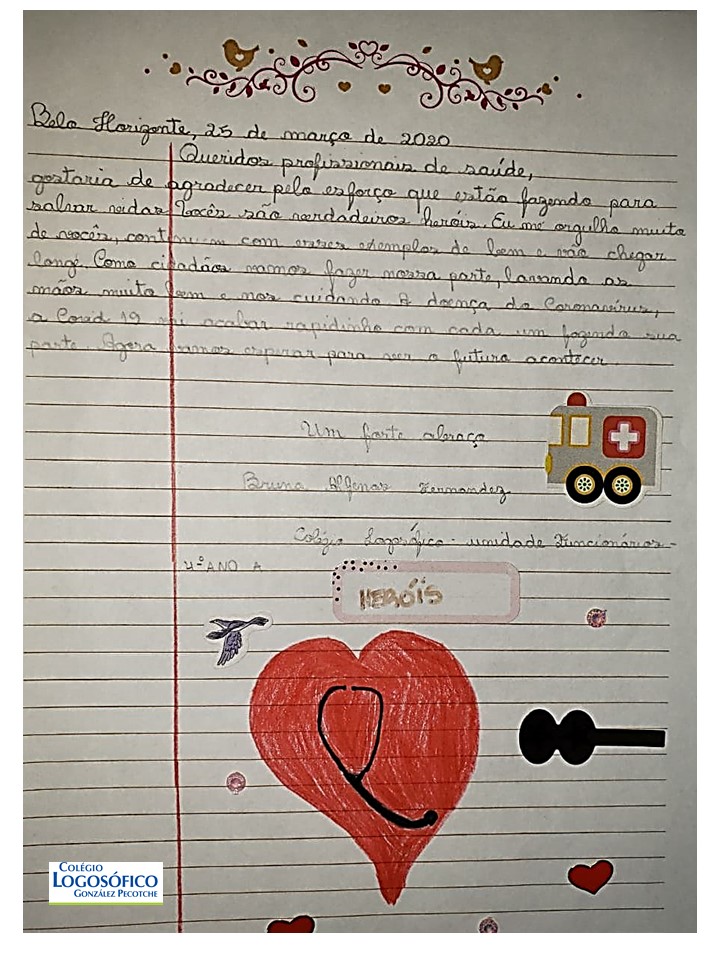 Belo Horizonte, 25 de março de 2020
Queridos profissionais de saúde,
gostaria de agradecer pelo esforço que estão fazendo para
salvar vidas. Vocês são verdadeiros heróis. Eu me orgulho muito
de vocês, continuem com esses exemplos de bem e vão chegar
longe. Como cidadãos vamos fazer nossa parte, lavando as
mãos muito bem e nos cuidando. A doença do Coronavírus,
a Covid 19 vai acabar rapidinho com cada um fazendo sua
parte. Agora vamos esperar para ver o futuro acontecer.
Um forte abraço
Bruna Alfenas Fernandez
Colégio Logosófico - unidade Funcionários -
4º ANO A
HERÓIS
COLÉGIO
LOGOSÓFICO
GONZÁLEZ PECOTCHE